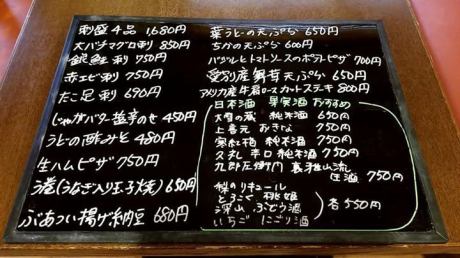 刺盛4品 1,680円
大バチマグロ刺 850円
銀鮭刺 750円
赤エビ刺 750円
たこ足刺 690円
じゃがバター塩辛のせ 450円
うどの酢みそ 480円
生ハムピザ 750円
う巻(うなぎ入り玉子焼) 650円
ぶあつい揚げ納豆 680円
葉うどの天ぷら 650円
ちかの天ぷら 600円
バジルとトマトソースのポテトピザ 700円
愛別産舞茸天ぷら 650円
アメリカ産牛肩ロースカットステーキ 800円
日本酒 果実酒 おすすめ
大雪の蔵 純米酒 650円
上喜元 おきな 750円
寒紅梅 純米酒 750円
久礼 辛口 純米酒 750円
九郎左衛門 裏雅山流
750円
梨のリキュール
とろこく 桃姫
深山 ぶどう酒
いちご にごり酒
各550円